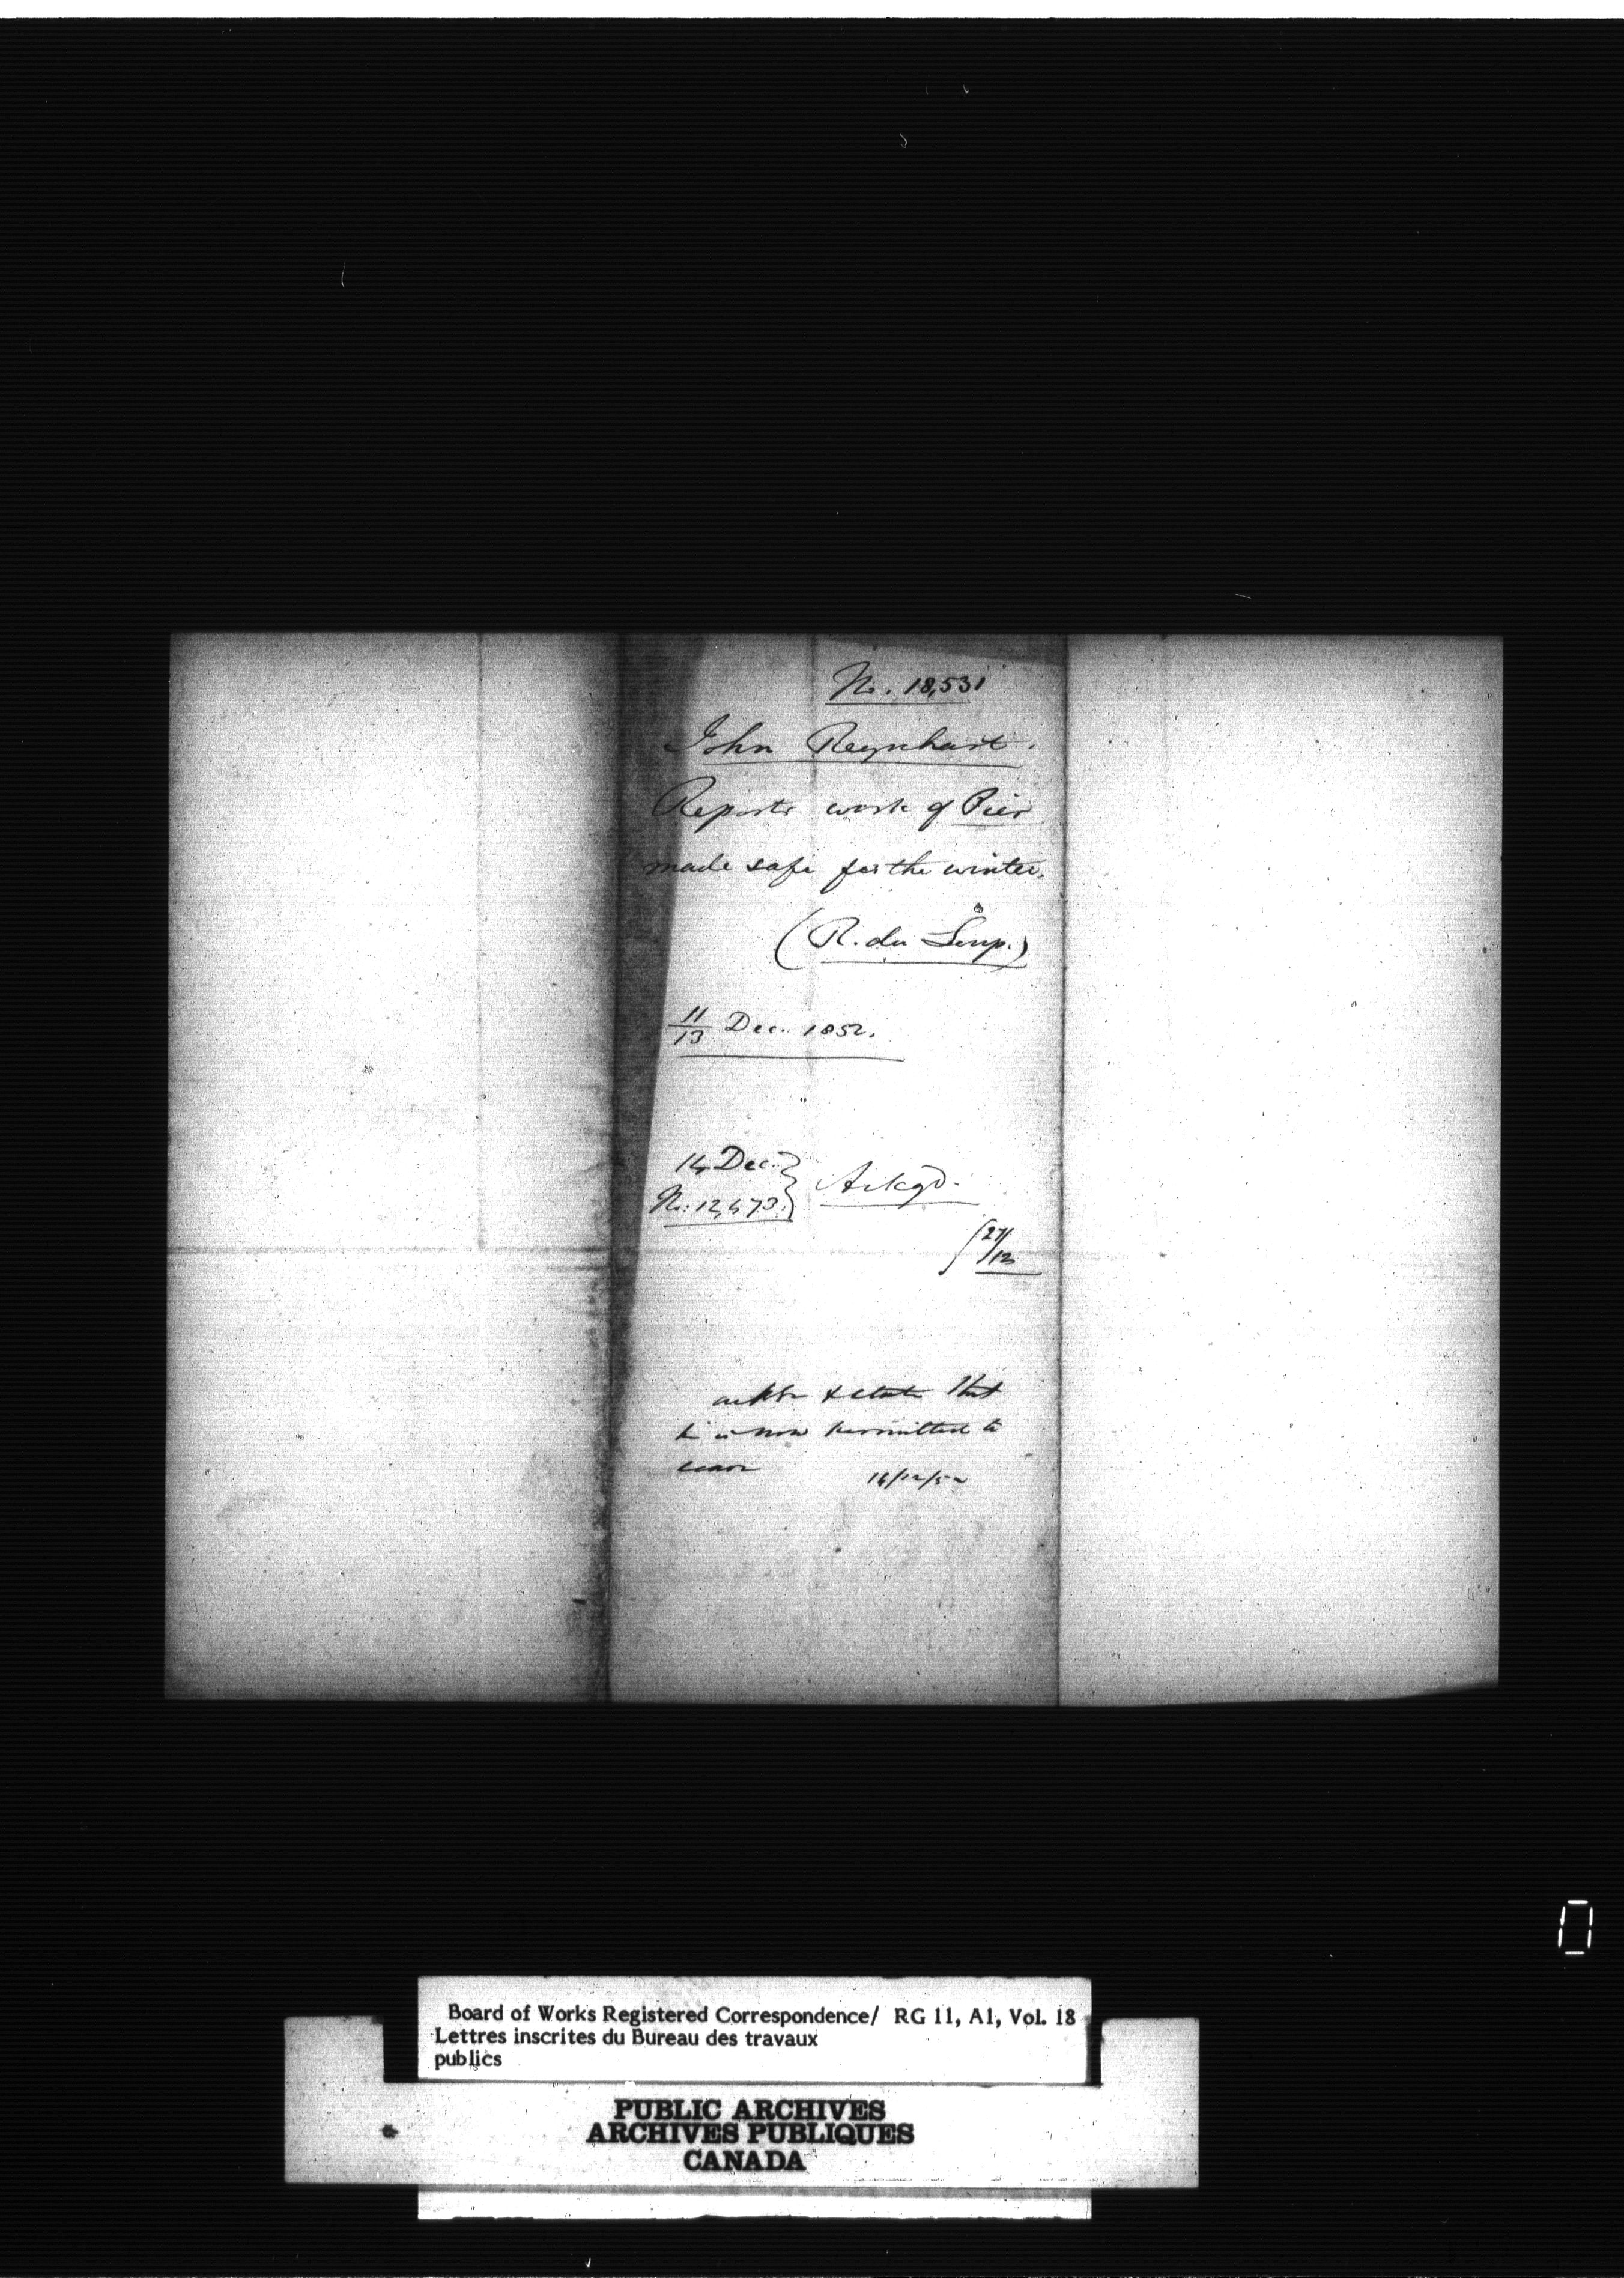 No. 18,531
John Reynhart.
Reports work of Pier
made safe for the winter.
(R. du Loup.)
11/13 Dec. 1852.
14 Dec.
No. 12,473.
Ackgd.
27/12
& state that
he is now permitted to
leave
16/12/52
Board of Works Registered Correspondence/ RG 11, A1, Vol. 18
Lettres inscrites du Bureau des travaux
publics
PUBLIC ARCHIVES
ARCHIVES PUBLIQUES
CANADA